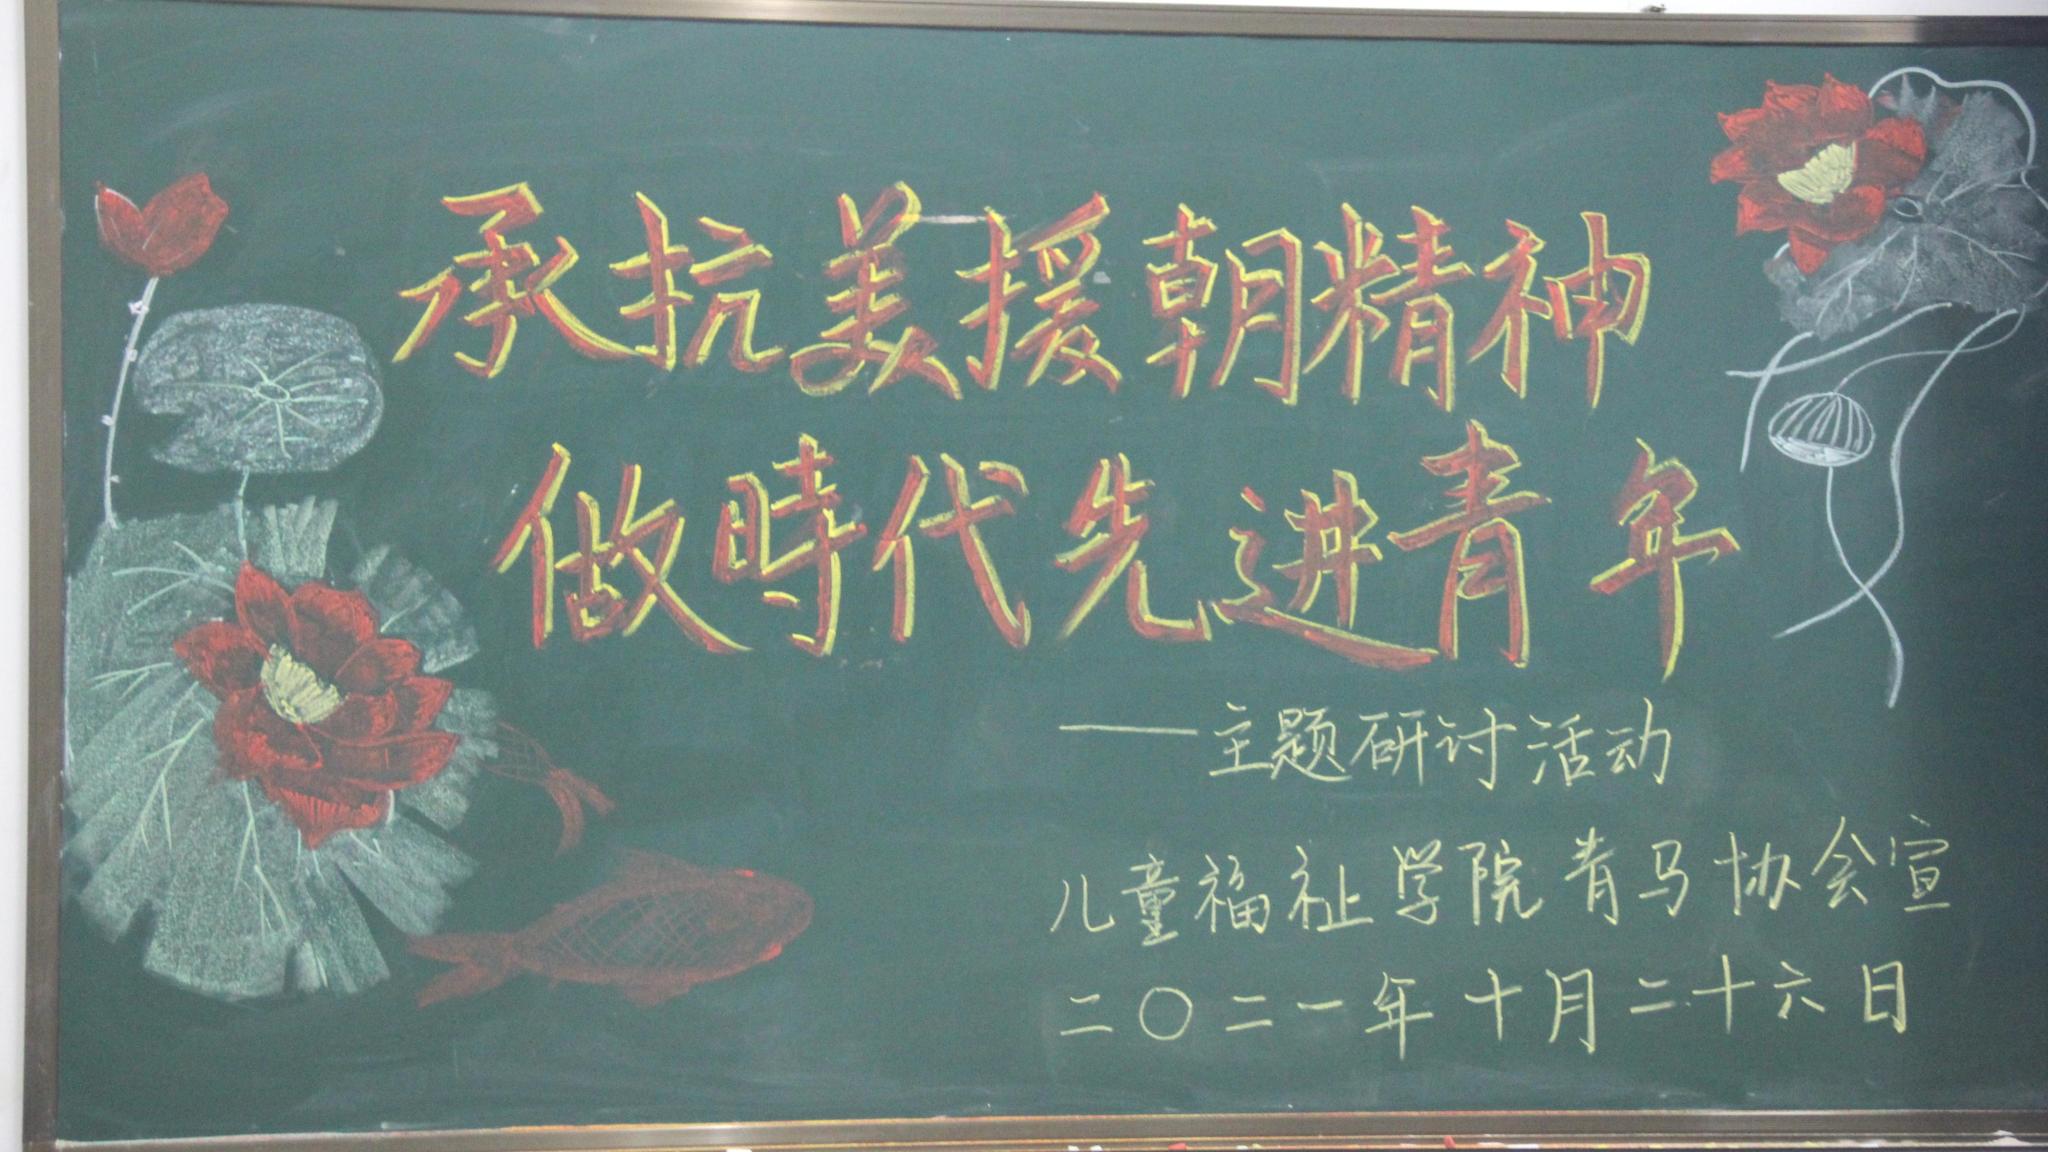 承抗美援朝精神
做時代先进青年
——主题研讨活动
儿童福祉学院青马协会宣
二〇二一年十月二十六日